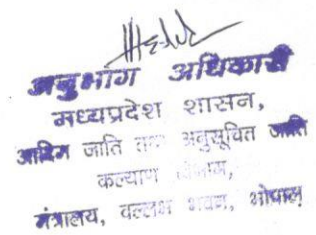 अनुभाग अधिकारी
मध्यप्रदेश शासन,
आदिम जाति तथा अनुसूचित जाति
कल्याण विभाग,
मंत्रालय, वल्लभ भवन, भोपाल